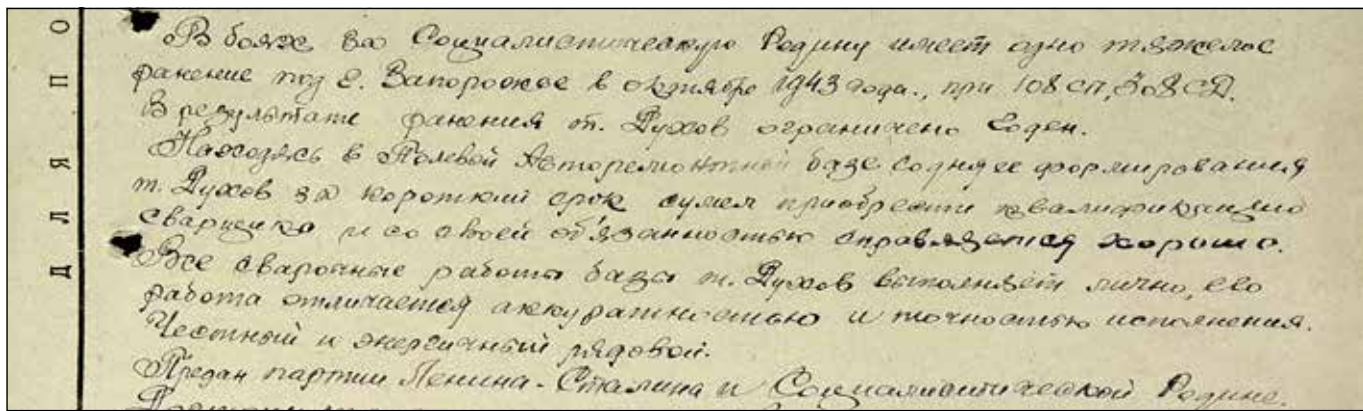 В боях за Социалистическую Родину имеет одно тяжелое
ранение под г. Запорожье в октябре 1943 года., при 108 СП, 308 СД.
В результате ранения т. Духов ограничено годен.
Находясь в Полевой Авторемонтной базе со дня ее формирования
т. Духов за короткий срок сумел приобрести квалификацию
сварщика и со своей об'язанностью справляется хорошо.
Все сварочные работы базы т. Духов выполняет лично, его
работа отличается аккуратностью и точностью исполнения.
Честный и энергичный рядовой.
Предан партии Ленина-Сталина и Социалистической Родине.
Д Л Я П О